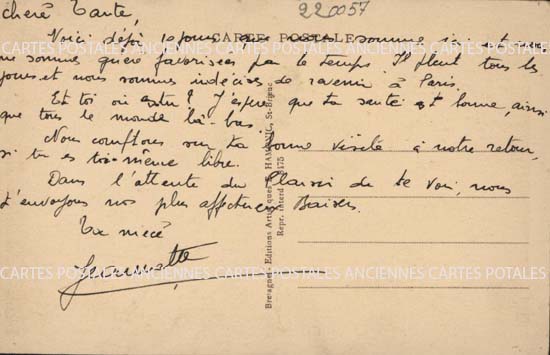 220057
CARTE POSTALE
chère Tante,
Voici déjà 10 jours que nous sommes ici et nous
ne sommes guère favorisées par le temps Il pleut tous les
jours et nous sommes indécises de revenir à Paris.
Et toi où es tu ? J'espère que ta santé est bonne, ainsi
que tous le monde là-bas.
Nous comptons sur ta bonne visite à notre retour,
si tu es toi-même libre.
Dans l'attente du Plaisir de te voir, nous
t'envoyons nos plus affectueux Baisers.
Ta nièce
CARTES POSTALES ANCIENNES CARTES POSTALES ANCIENNES CARTES POSTALES
CARTES POSTALES ANCIENNES CARTES POSTALES ANCIENNES CARTES POSTALES
CARTES POSTALES ANCIENNES CARTES POSTALES ANCIENNES CARTES POSTALES
Bretagne. Editions Artistiques HAMONIC, St-Brieuc
Repr. interd 475